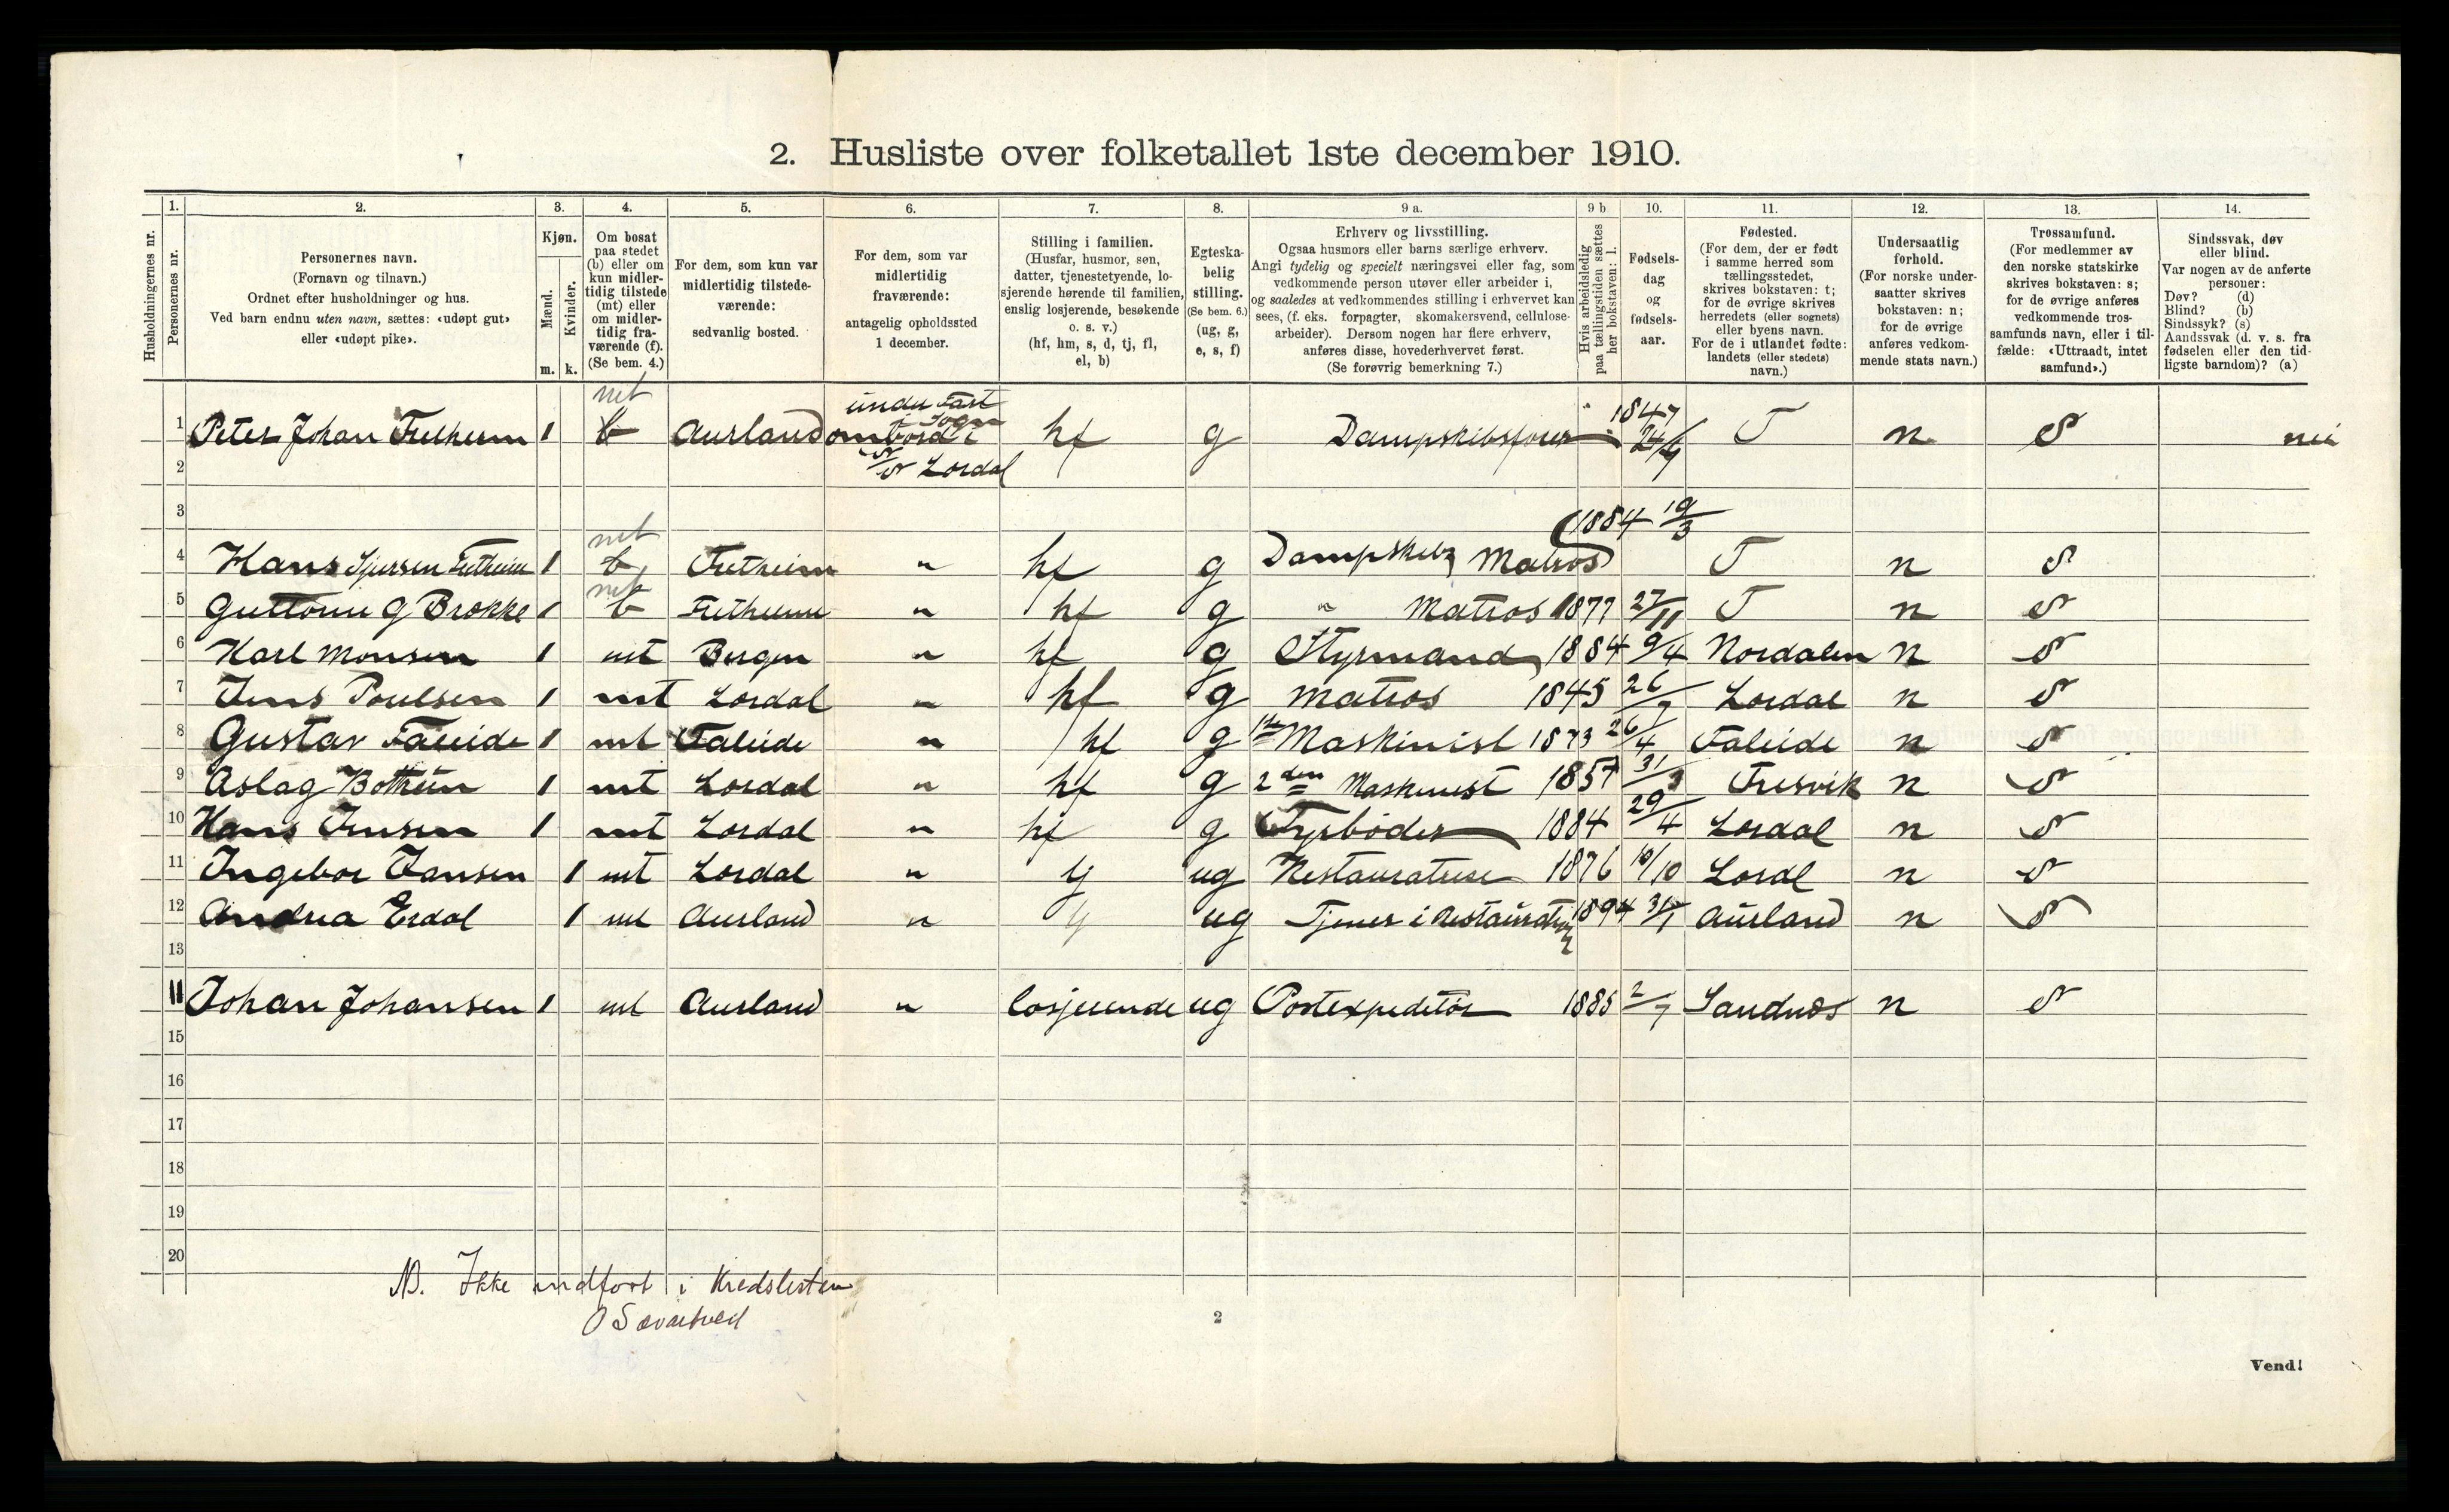 2. Husliste over folketallet 1ste december 1910.
Husholdningernes nr.
1. Personernes nr.
2. Personernes navn. (Fornavn og tilnavn.) Ordnet efter husholdninger og hus. Ved barn endnu uten navn, sættes: «udøpt gut» eller «udøpt pike».
3. Kjøn. Mænd. m. Kvinder. k.
4. Om bosat paa stedet (b) eller om kun midlertidig tilstede (mt) eller om midlertidig fraværende (f). (Se bem. 4.)
5. For dem, som kun var midlertidig tilstedeværende: sedvanlig bosted.
6. For dem, som var midlertidig fraværende: antagelig opholdssted 1 december.
7. Stilling i familien. (Husfar, husmor, søn, datter, tjenestetyende, losjerende hørende til familien, enslig losjerende, besøkende o. s. v.) (hf, hm, s, d, tj, fl, el, b)
8. Egteskabelig stilling. (Se bem. 6.) (ug, g, e, s, f)
9 a. Erhverv og livsstilling. Ogsaa husmors eller barns særlige erhverv. Angi tydelig og specielt næringsvei eller fag, som vedkommende person utøver eller arbeider i, og saaledes at vedkommendes stilling i erhvervet kan sees, (f. eks. forpagter, skomakersvend, cellulosearbeider). Dersom nogen har flere erhverv, anføres disse, hovederhvervet først. (Se forøvrig bemerkning 7.)
9 b Hvis arbeidsledig paa tællingstiden sættes her bokstaven: l.
10. Fødselsdag og fødselsaar.
11. Fødested. (For dem, der er født i samme herred som tællingsstedet, skrives bokstaven: t; for de øvrige skrives herredets (eller sognets) eller byens navn. For de i utlandet fødte: landets (eller stedets) navn.)
12. Undersaatlig forhold. (For norske undersaatter skrives bokstaven: n; for de øvrige anføres vedkommende stats navn.)
13. Trossamfund. (For medlemmer av den norske statskirke skrives bokstaven: s; for de øvrige anføres vedkommende trossamfunds navn, eller i tilfælde: «Uttraadt, intet samfund».)
14. Sindssvak, døv eller blind. Var nogen av de anførte personer: Døv? (d) Blind? (b) Sindssyk? (s) Aandssvak (d. v. s. fra fødselen eller den tidligste barndom)? (a)
1 Peter Johan Fretheim 1 mt b Aurland under Fart ombord i Sogn S/S Lærdal hf g Dampskibsfører 1847 24/9 T n S nei
2
3
4 Hans Sjursen Fretheim 1 mt b Fretheim " hf g Dampskibs Matros 1884 19/3 T n S
5 Guttorm G Brekke 1 mt b Fretheim " hf g " Matros 1877 27/11 T n S
6 Karl Monsen 1 mt Bergen " hf g Styrmand 1884 9/4 Nordalen n S
7 Jens Poulsen 1 mt Lærdal " hf g Matros 1845 26/7 Lærdal n S
8 Gustav Faleide 1 mt Faleide " hf g 1ste Maskinist 1873 26/4 Faleide n S
9 Aslag Bothun 1 mt Lærdal " hf g 2den Maskinist 1857 31/3 Fresvik n S
10 Hans Jensen 1 mt Lærdal " hf g Fyrbøder 1884 29/4 Lærdal n S
11 Ingebor Jansen 1 mt Lærdal " tj ug Restauratrise 1876 10/10 Lærdl n S
12 Andrea Erdal 1 mt Aurland " tj ug Tjener i Restauration 1894 31/1 Aurland n S
13
11 Johan Johansen 1 mt Aurland " losjerende ug Postexpeditør 1885 2/7 Sandnæs n S
15
16
17
18
19
20
NB. Ikke indført i Kredslisten
2
Vend!